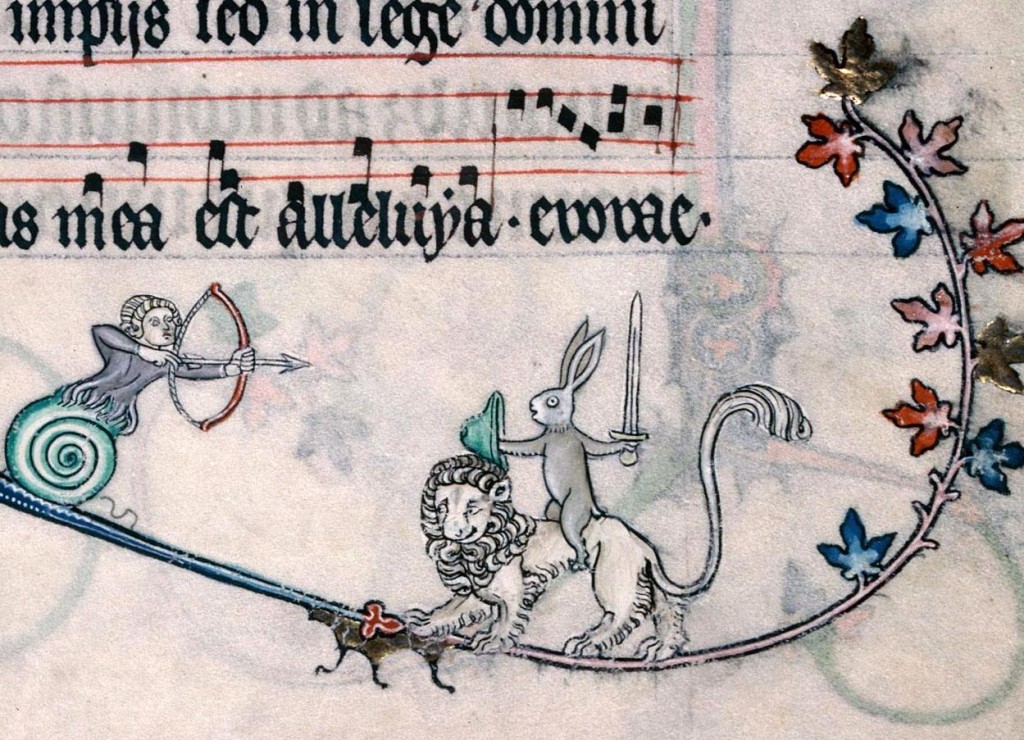 impijs sed in lege domini
as mea est alleluÿa · evovae ·